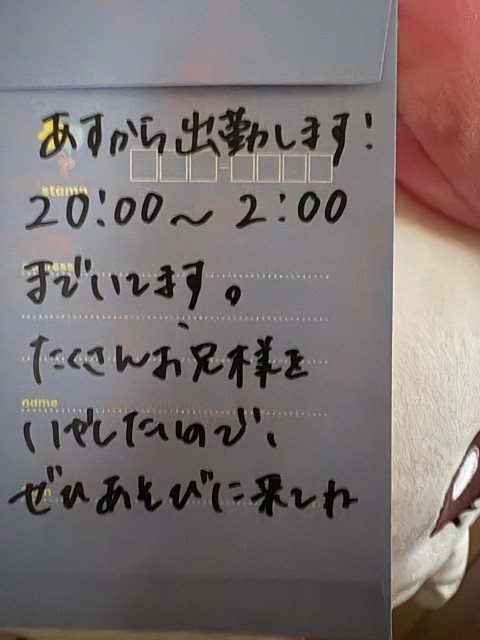 あすから出勤します!
stamp
20:00〜2:00
までいてます。
たくさんお兄様を
name
いやしたいので、
ぜひあそびに来てね